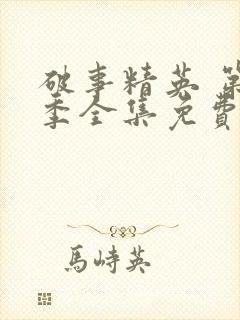 破事精英 第
季全集免费
馬峙英